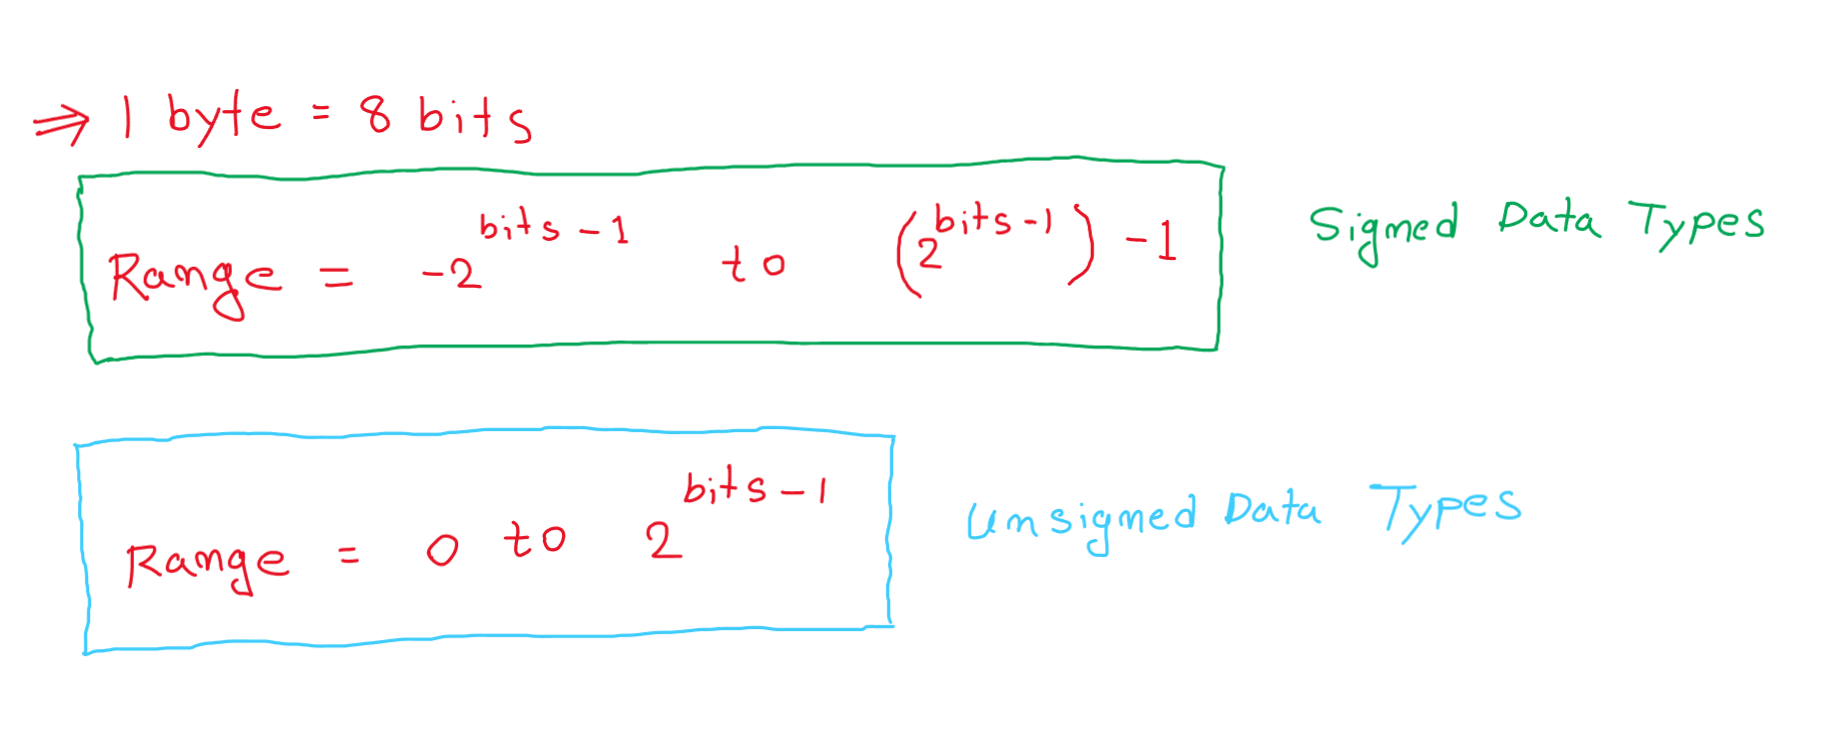 ⇒ 1 byte = 8 bits
Range = -2^(bits-1) to (2^(bits-1)) -1 Signed Data Types
Range = 0 to 2^(bits-1) Unsigned Data Types